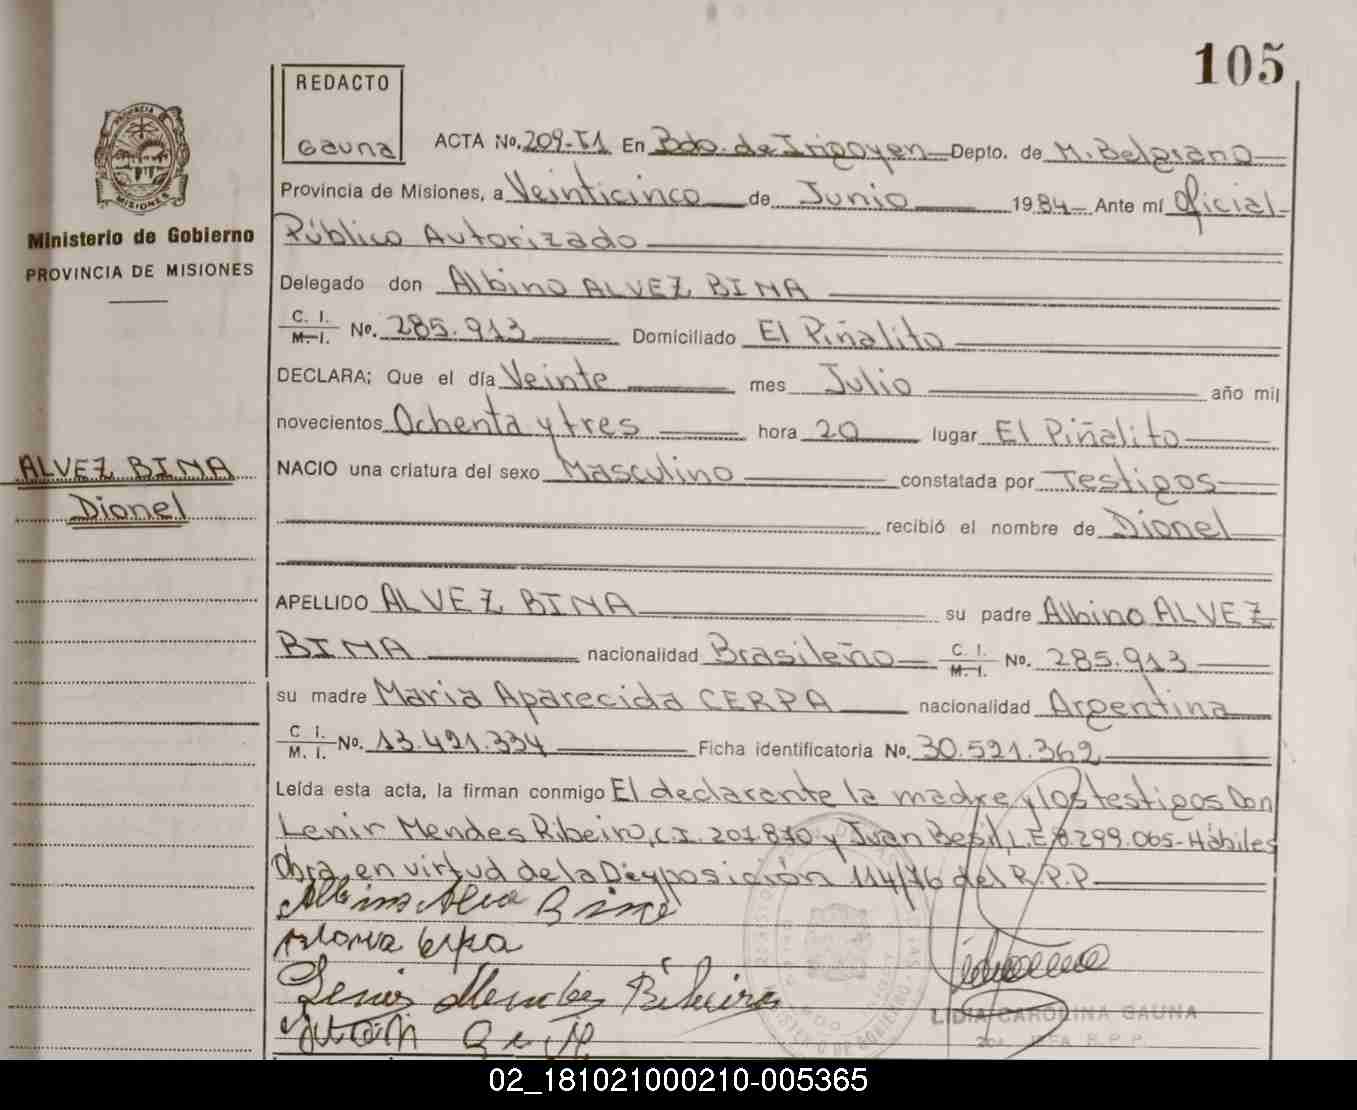 105
REDACTO
Gauna
ACTA No. 209-T1 En Bdo. de Irigoyen Depto. de M. Belgrano
Provincia de Misiones, a Veinticinco de Junio 1984 Ante mí Oficial
Público Autorizado
PROVINCIA DE
MISIONES
Ministerio de Gobierno
PROVINCIA DE MISIONES
Delegado don Albino ALVEZ BINA
C. I.
M. I. No. 285.913 Domiciliado El Piñalito
DECLARA; Que el día Veinte mes Julio año mil
novecientos Ochenta y tres hora 20 lugar El Piñalito
ALVEZ BINA
Dionel
NACIO una criatura del sexo Masculino constatada por Testigos
recibió el nombre de Dionel
APELLIDO ALVEZ BINA su padre Albino ALVEZ
BINA nacionalidad Brasileño C. I. M. I. No. 285.913
su madre Maria Aparecida CERPA nacionalidad Argentina
C. I.
M. I. No. 13.421.334 Ficha identificatoria No. 30.521.362
Leída esta acta, la firman conmigo El declarante la madre y los testigos Don
Lenir Mendes Ribeiro, C.I. 207.870 y Juan Besil, L.E 8.299.065-Hábiles
Obra en virtud de la Disposición 114/76 del R.P.P
Albino Alves Bina
Maria Cerpa
Lenir Mendes Ribeiro
LIDIA CAROLINA GAUNA
R.P.P.
02_181021000210-005365